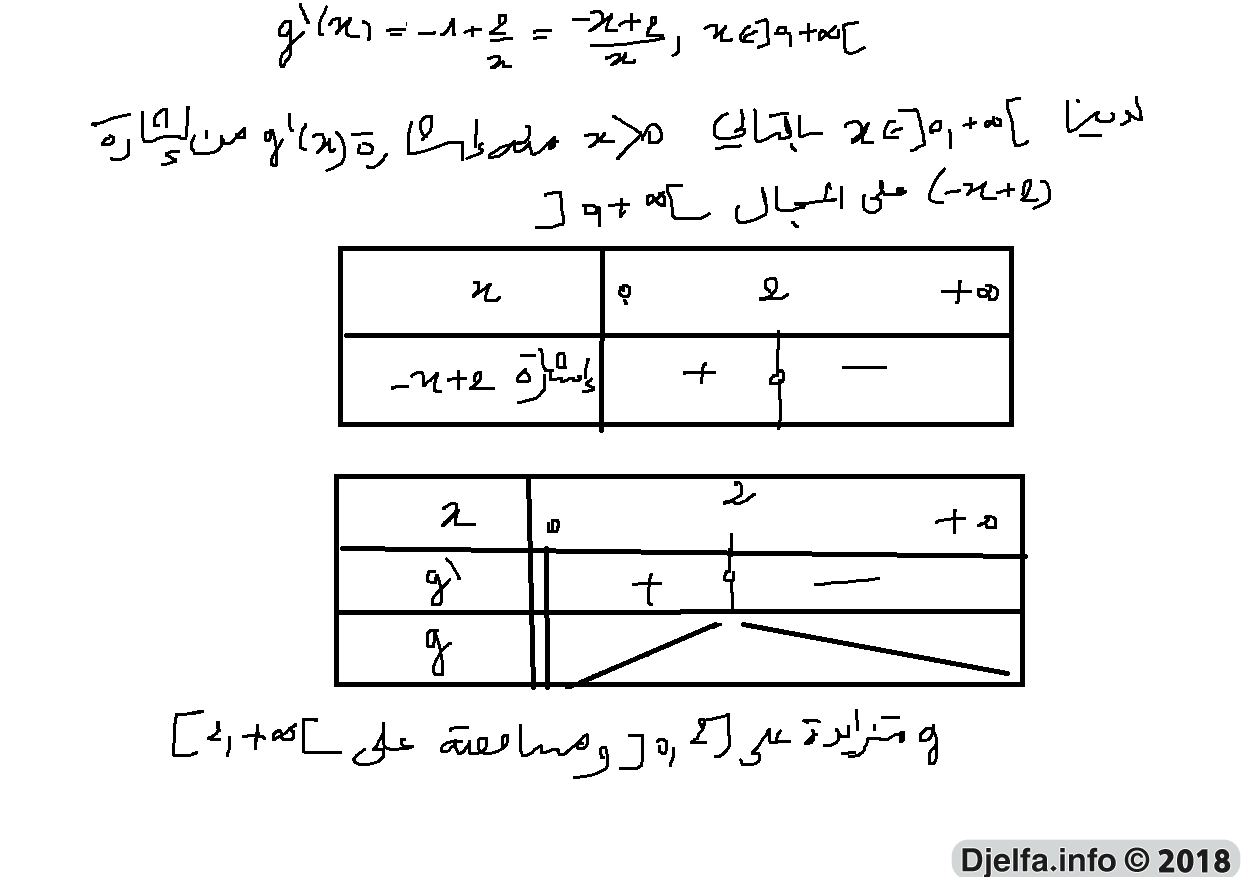 g'(x) = -1 + 2/x = (-x+2)/x , x∈]0,+∞[
لدينا x∈]0,+∞[ بالتالي x>0 ومنه إشارة g'(x) من إشارة
(-x+2) على المجال ]0,+∞[
x 0 2 +∞
إشارة -x+2 + 0 −
x 0 2 +∞
g' + 0 −
g
g متزايدة على ]0,2] ومتناقصة على [2,+∞[
Djelfa.info © 2018